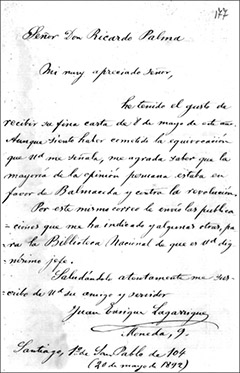 177
Señor Don Ricardo Palma
Mi muy apreciado señor,
he tenido el gusto de
recibir su fina carta de 8 de mayo de este año.
Aunque siento haber cometido la equivocación
que Ud me señala, me agrada saber que la
mayoría de la opinión peruana estaba en
favor de Balmaceda y contra la revolución.
Por este mismo correo le envío las publica
ciones que me ha indicado y algunas otras, pa
ra la Biblioteca Nacional de que es Ud. dig
nísimo jefe.
Saludándole atentamente me sus-
cribo de Ud su amigo y servidor
Juan Enrique Lagarrigue
Moneda, 9.
Santiago, 12 de San Pablo de 104
(20 de mayo de 1892)